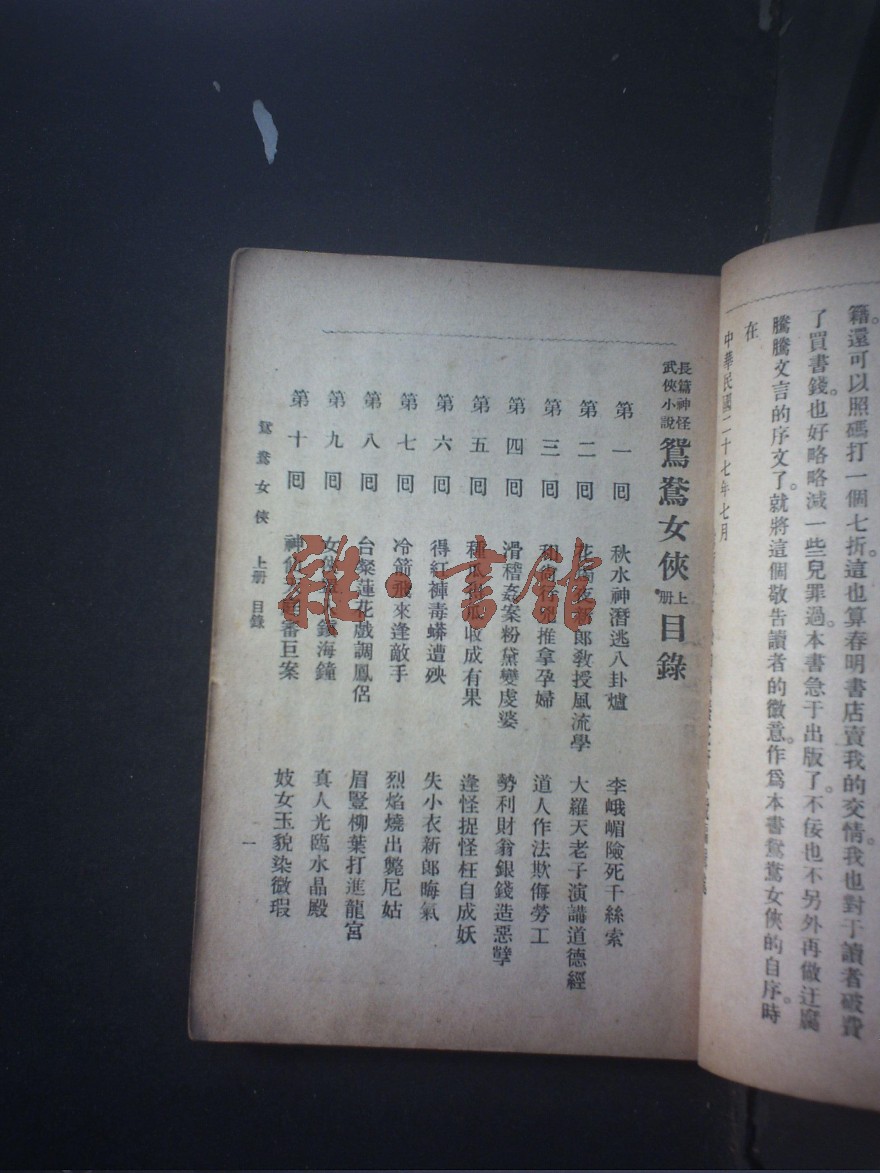 籍。還可以照碼打一個七折。這也算春明書店賣我的交情。我也對于讀者破費
了買書錢。也好略略減一些兒罪過。本書急于出版了。不佞也不另外再做迂腐
騰騰文言的序文了。就將這個敬告讀者的微意。作爲本書鴛鴦女俠的自序。時
在
中華民國二十七年七月
長篇神怪武俠小說 鴛鴦女俠 上册 目錄
第一囘 秋水神潛逃八卦爐 李峨嵋險死千絲索
第二囘 花燭夜新郎敎授風流學 大羅天老子演講道德經
第三囘 推拿孕婦 道人作法欺侮勞工
第四囘 滑稽姦案粉黛變虔婆 勢利財翁銀錢造惡孽
第五囘 種瓜得瓜收成有果 逢怪捉怪枉自成妖
第六囘 得紅褲毒蟒遭殃 失小衣新郎晦氣
第七囘 冷箭飛來逢敵手 烈焰燒出斃尼姑
第八囘 台粲蓮花戲調鳳侶 眉豎柳葉打進龍宮
第九囘 女俠 鎮海鐘 真人光臨水晶殿
第十囘 神仙 審巨案 妓女玉貌染微瑕
鴛鴦女俠 上册 目錄
一
雜·書館